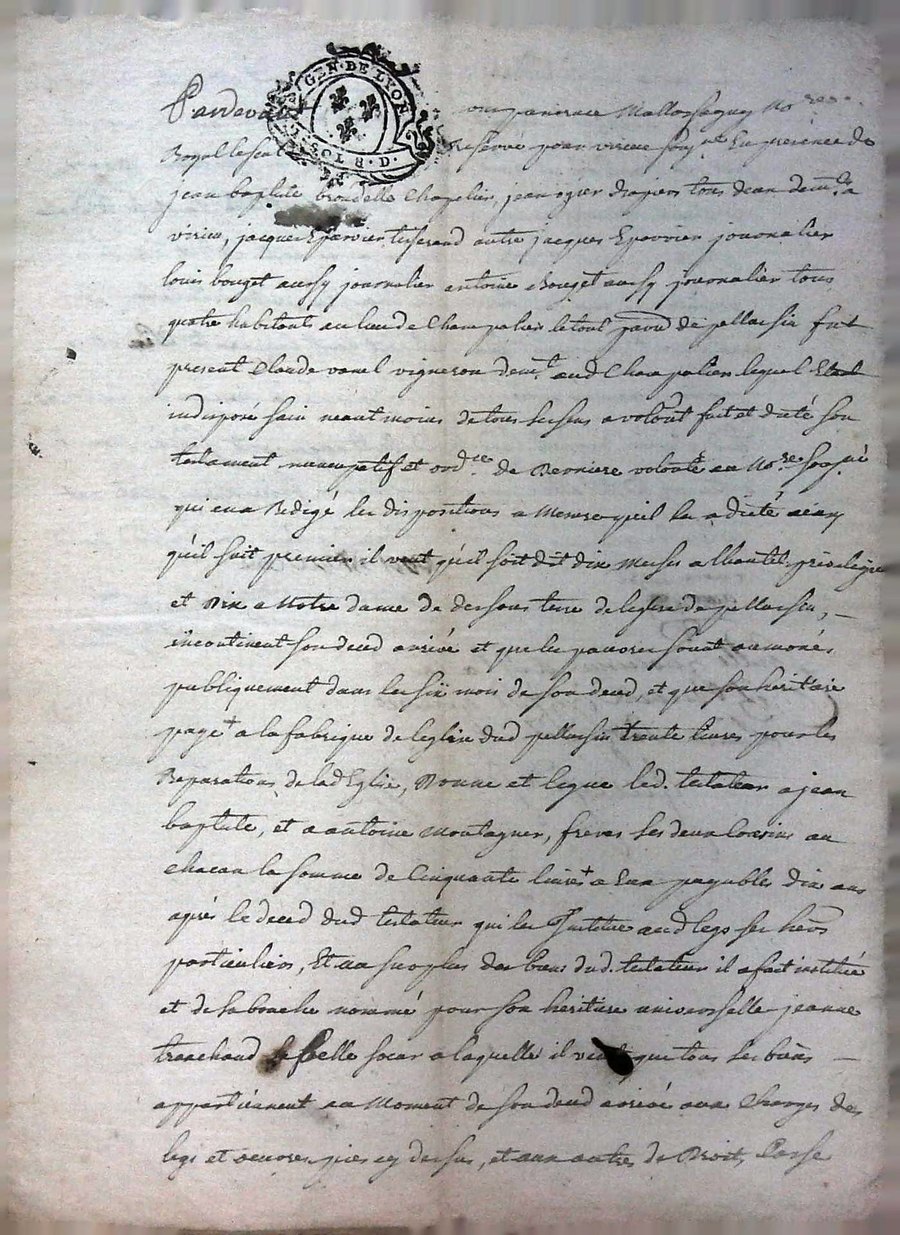 GEN. DE LYON
Pardevant Mallossagny No.re
Royal reservé pour virieu soug.né En presence de
jean baptiste brondelle Chapelier, jean ogier drapier tous deux dem.ts a
virieu, jacques Eparvier tisserand autre jacques Eparvier journalier
louis bouget aussy journalier antoine Bouget aussy journalier tous
quatre habitants au lieu de Champalier le tout parr.e de pellussin fut
present Claude vanel vigneron dem.t aud Champalier lequel Etant
indisposé sain neantmoins de tous ses sens a volont.t fait et dicté son
testament nuncupatif et ord.ce de Derniere volonté au No.re soug.né
qui en a Redigé les dispositions a Mesure qu'il les a dicté ainsy
qu'il suit premier il veut qu'il soit dit dix Messes a lhautel privilegié
et Dix a Notre dame de dessous terre de leglise de pellussin, —
incontinent son deced arrivé et que les pauvres soint aumonés
publiquement dans les six mois de son deced, et que son heritiere
paye + a la fabrique de leglise dud pellussin trente livres pour les
Reparations de lad Eglise, Donne et legue led. testateur a jean
baptiste, et a antoine Montagner, freres ses deux Cousins au
chacun la somme de Cinquante livres + a Eux payables dix ans
après le deced dud testateur qui les Institue aud legs ses hers
particuliers, Et au surplus des biens dud. testateur il a fait institué
et de sa bouche nommé pour son heritiere universelle jeanne
tranchand sa belle soeur a laquelle il veut que tous ses biens —
appartiennent au Moment de son deced arrivé aux Charges des
legs et oeuvres pies cy dessus, et aux autres de Droit, Casse